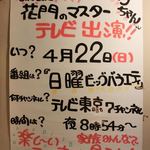 花門のマスター
ちゃん
テレビ出演!!
いつ? 4月22日(日)
番組は? 「日曜ビッグバラエティ」
何チャンネル? テレビ東京 7チャンネル
時間は? 夜8時54分〜
楽しい